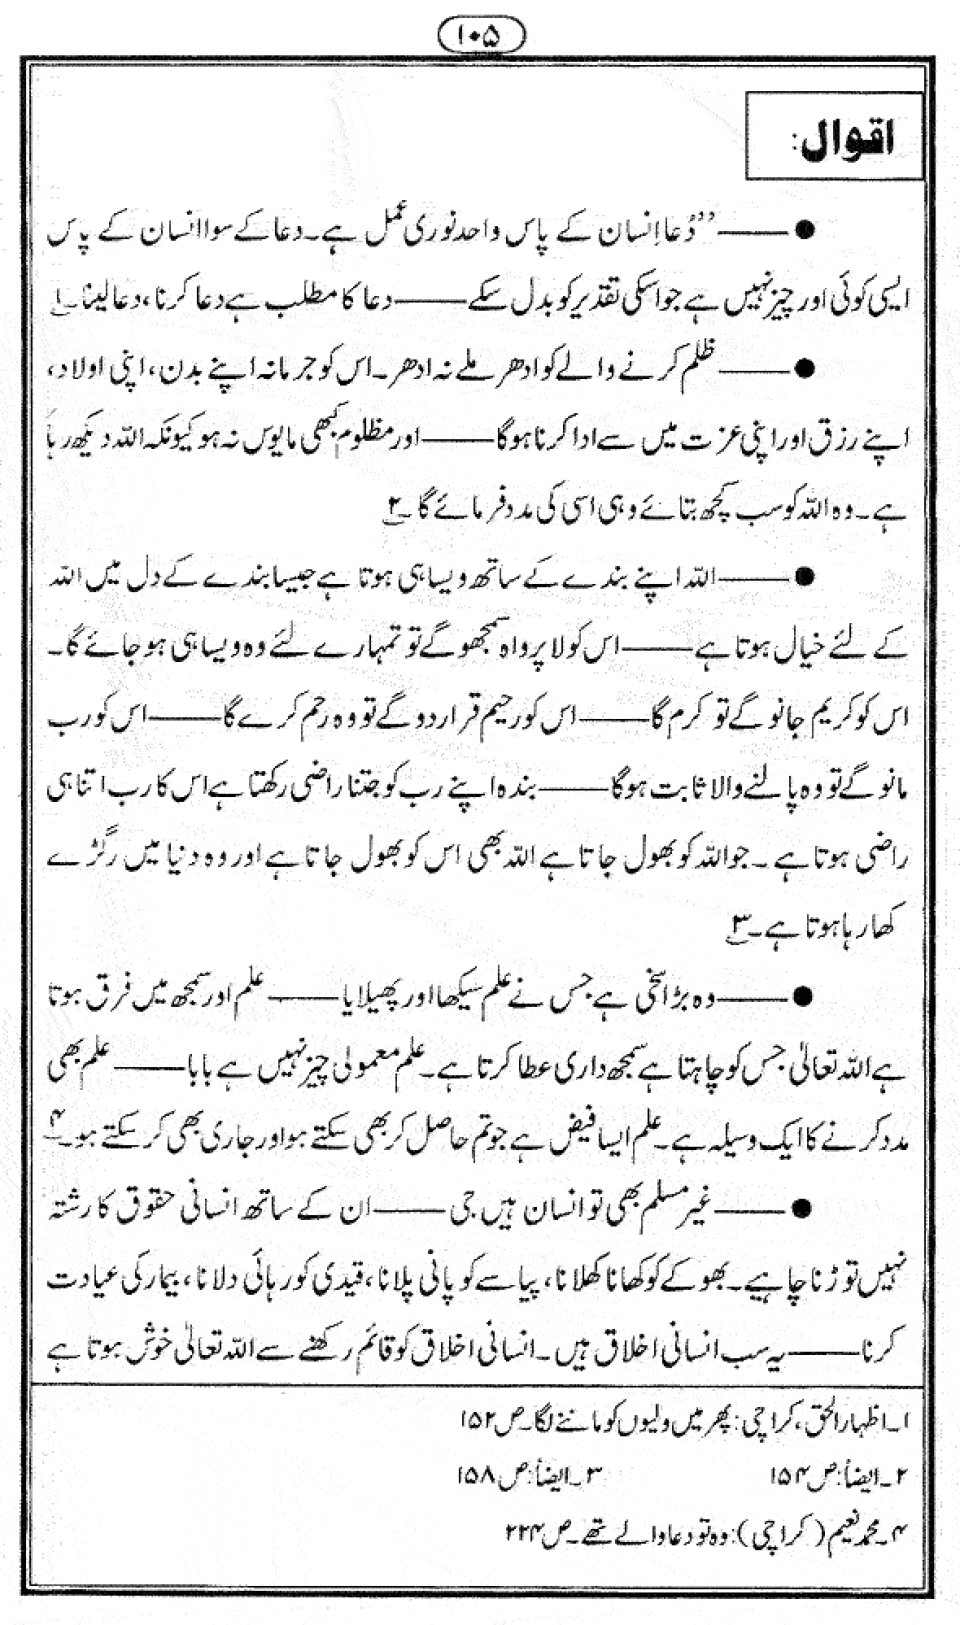 ۱۰۵
اقوال:
● ——— ’’دُعا اِنسان کے پاس واحد نوری عمل ہے۔ دعا کے سوا انسان کے پاس
ایسی کوئی اور چیز نہیں ہے جو اسکی تقدیر کو بدل سکے ——— دعا کا مطلب ہے دعا کرنا، دعا لینا۔ ۱
● ——— ظلم کرنے والے کو ادھر ملے نہ ادھر۔ اس کو جرمانہ اپنے بدن، اپنی اولاد،
اپنے رزق اور اپنی عزت میں سے ادا کرنا ہوگا ——— اور مظلوم کبھی مایوس نہ ہو کیونکہ اللہ دیکھ رہا
ہے۔ وہ اللہ کو سب کچھ بتائے وہی اسی کی مدد فرمائے گا۔ ۲
● ——— اللہ اپنے بندے کے ساتھ ویسا ہی ہوتا ہے جیسا بندے کے دل میں اللہ
کے لئے خیال ہوتا ہے ——— اس کو لا پرواہ سمجھو گے تو تمہارے لئے وہ ویسا ہی ہو جائے گا۔
اس کو کریم جانو گے تو کرم گا ——— اس کو رحیم قرار دو گے تو وہ رحم کرے گا ——— اس کو رب
مانو گے تو وہ پالنے والا ثابت ہوگا ——— بندہ اپنے رب کو جتنا راضی رکھتا ہے اس کا رب اتنا ہی
راضی ہوتا ہے۔ جو اللہ کو بھول جاتا ہے اللہ بھی اس کو بھول جاتا ہے اور وہ دنیا میں رگڑے
کھا رہا ہوتا ہے۔ ۳
● ——— وہ بڑا سخی ہے جس نے علم سیکھا اور پھیلایا ——— علم اور سمجھ میں فرق ہوتا
ہے اللہ تعالیٰ جس کو چاہتا ہے سمجھ داری عطا کرتا ہے۔ علم معمولی چیز نہیں ہے بابا ——— علم بھی
مدد کرنے کا ایک وسیلہ ہے۔ علم ایسا فیض ہے جو تم حاصل کر بھی سکتے ہو اور جاری بھی کر سکتے ہو۔ ۴
● ——— غیر مسلم بھی تو انسان ہیں جی ——— ان کے ساتھ انسانی حقوق کا رشتہ
نہیں توڑنا چاہیے۔ بھوکے کو کھانا کھلانا، پیاسے کو پانی پلانا، قیدی کو رہائی دلانا، بیمار کی عیادت
کرنا ——— یہ سب انسانی اخلاق ہیں۔ انسانی اخلاق کو قائم رکھنے سے اللہ تعالیٰ خوش ہوتا ہے
۱۔ اظہار الحق، کراچی: پھر میں ولیوں کو ماننے لگا۔ ص ۱۵۲
۲۔ ایضاً: ص ۱۵۴ ۳۔ ایضاً: ص ۱۵۸
۴۔ محمد نعیم (کراچی): وہ تو دعا والے تھے۔ ص ۲۲۴